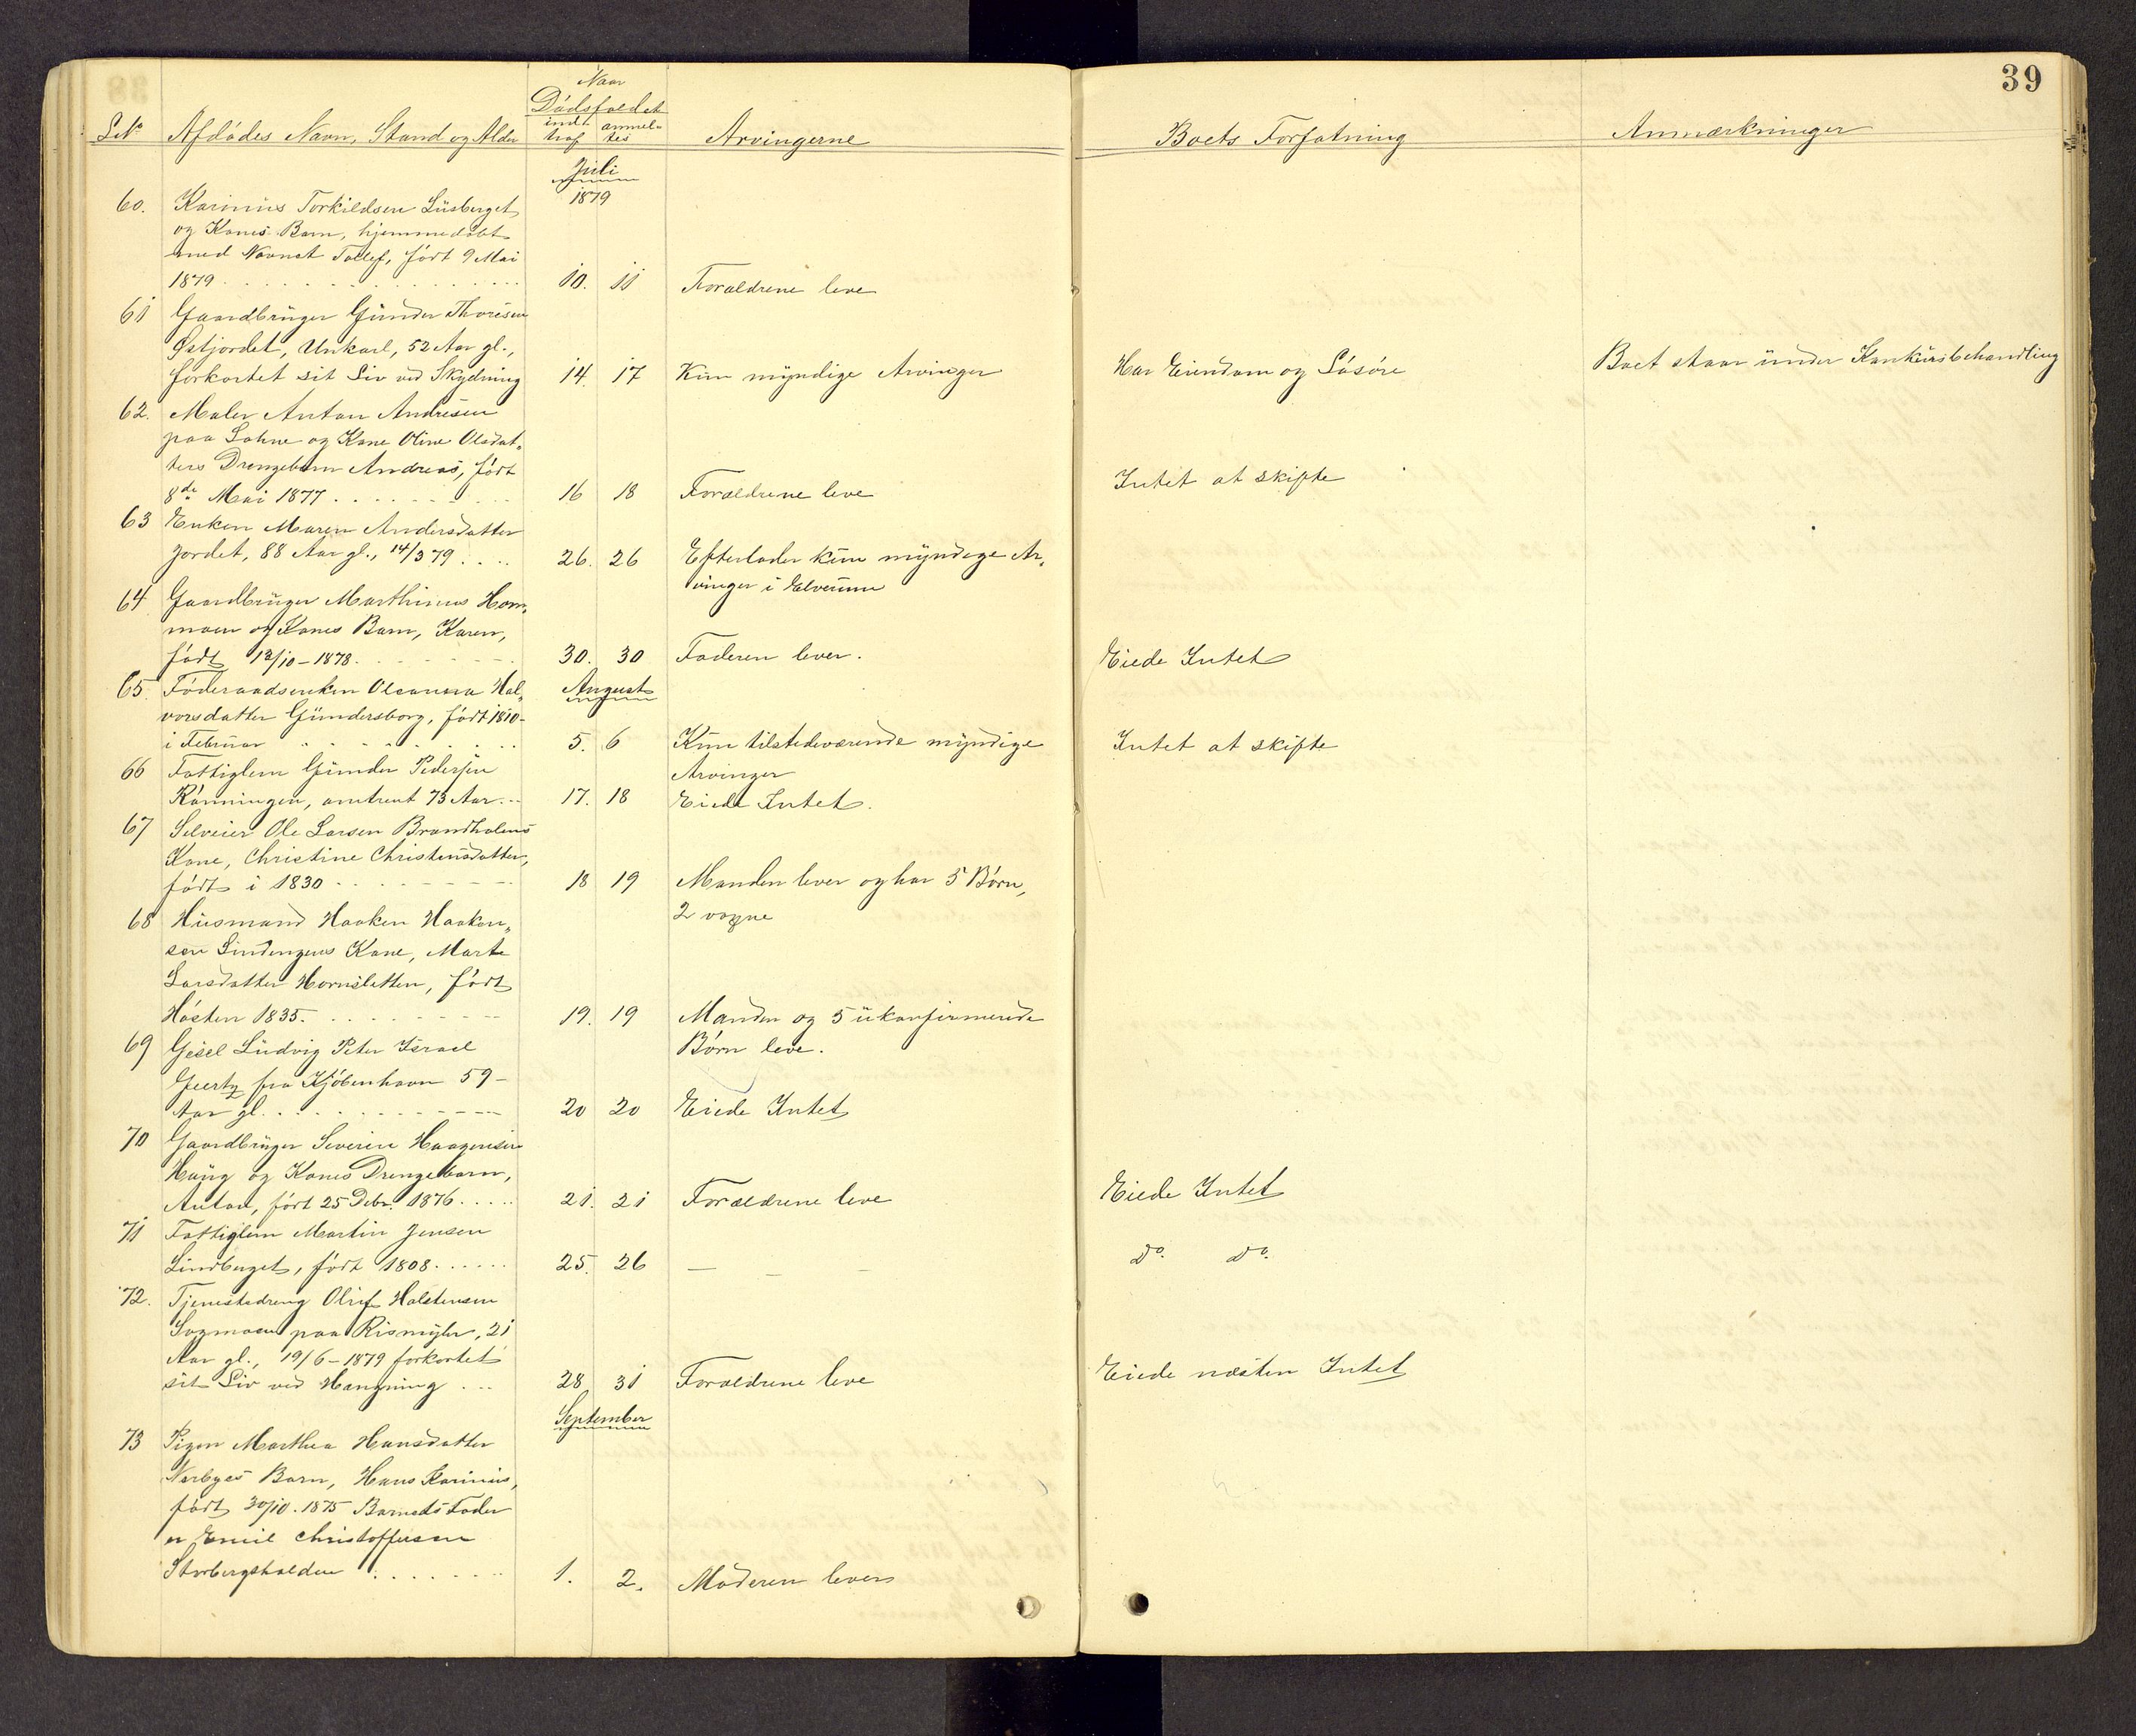 39
Naar
Dødsfaldet
LNo Afdødes Navn, Stand og Alder indtraf anmeltes Arvingerne Boets Forfatning Anmærkninger
Juli
1879
60. Karinius Torkildsen Lüsberget
og Kones Barn, hjemmedøbt
med Navnet Tollef, født 9 Mai
1879 10. 11 Forældrene leve
61 Gaardbrüger Günder Thoresen
Østjordet, Unkarl, 52 Aar gl.,
forkortet sit Liv ved Skydning 14. 17 Kün myndige Arvinger Har Eiendom og Løsøre Boet staar ünder Konkürsbehandling
62. Maler Anton Andresen
paa Løhne og Kone Oline Olsdat-
ters Drengebarn Andreas, født
8de Mai 1877 16 18 Forældrene leve Intet at skifte
63 Enken Maren Andersdatter
Jordet, 88 Aar gl., 14/3 79 26. 26 Efterlader kün myndige Ar-
vinger i Elverüm
64 Gaardbrüger Marthinus Hom-
moen og Kones Barn, Karen,
født 13/10-1878. 30. 30 Faderen lever. Eiede Intet
65. Føderaadsenken Oleanna Hal- August
vorsdatter Gündersborg, født 1810-
i Februar 5. 6 Kün tilstedeværende myndige Intet at skifte
Arvinger
66 Fattiglem Günder Pedersen
Rønningen, omtrent 73 Aar 17. 18 Eiede Intet.
67 Selveier Ole Larsen Brandholens
Kone, Christine Christensdatter,
født i 1830 18 19 Manden lever og har 5 Børn,
2 voxne
68 Hüsmand Haaken Haaken-
sen Lindengens Kone, Marte
Larsdatter Hornsletten, født
Høsten 1835. 19. 19 Manden og 5 ükonfirmerede
Børn leve.
69 Gesel Lüdvig Peter Israel
Geertz fra Kjøbenhavn 59-
Aar gl. 20 20 Eiede Intet
70 Gaardbrüger Severin Haagensen
Haüg og Kones Drengebarn,
Anton, født 25 Debr. 1876 21. 21 Forældrene leve Eiede Intet
71 Fattiglem Martin Jensen
Lindberget, født 1808 25. 26 — — — Do. Do.
72. Tjenestedreng Oluf Halstensen
Sogmoen paa Rismyler, 21
Aar gl., 19/6-1879 forkortet
sit Liv ved Hængning 28 31 Forældrene leve Eiede næsten Intet
September
73 Pigen Marthea Hansdatter
Nerbyes Barn, Hans Karinius,
født 30/10. 1875 Barnets Fader
er Emil Christoffersen
Storbergsholden 1. 2. Moderen lever